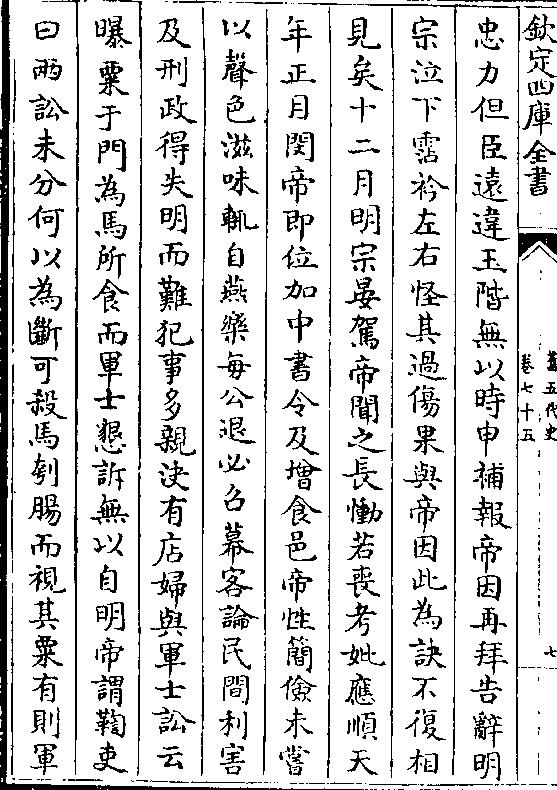 欽定四庫全書
舊五代史
卷七十五
七
忠力但臣遠違玉階無以時申補報帝因再拜告辭明
宗泣下霑衿左右怪其過傷果與帝因此為訣不復相
見矣十二月明宗晏駕帝聞之長慟若喪考妣應順天
年正月閔帝即位加中書令及增食邑帝性簡儉未嘗
以聲色滋味輒自燕樂每公退必召幕客論民間利害
及刑政得失明而難犯事多親決有店婦與軍士訟云
曝粟于門為馬所食而軍士懇訴無以自明帝謂鞫吏
曰兩訟未分何以為斷可殺馬刳腸而視其粟有則軍